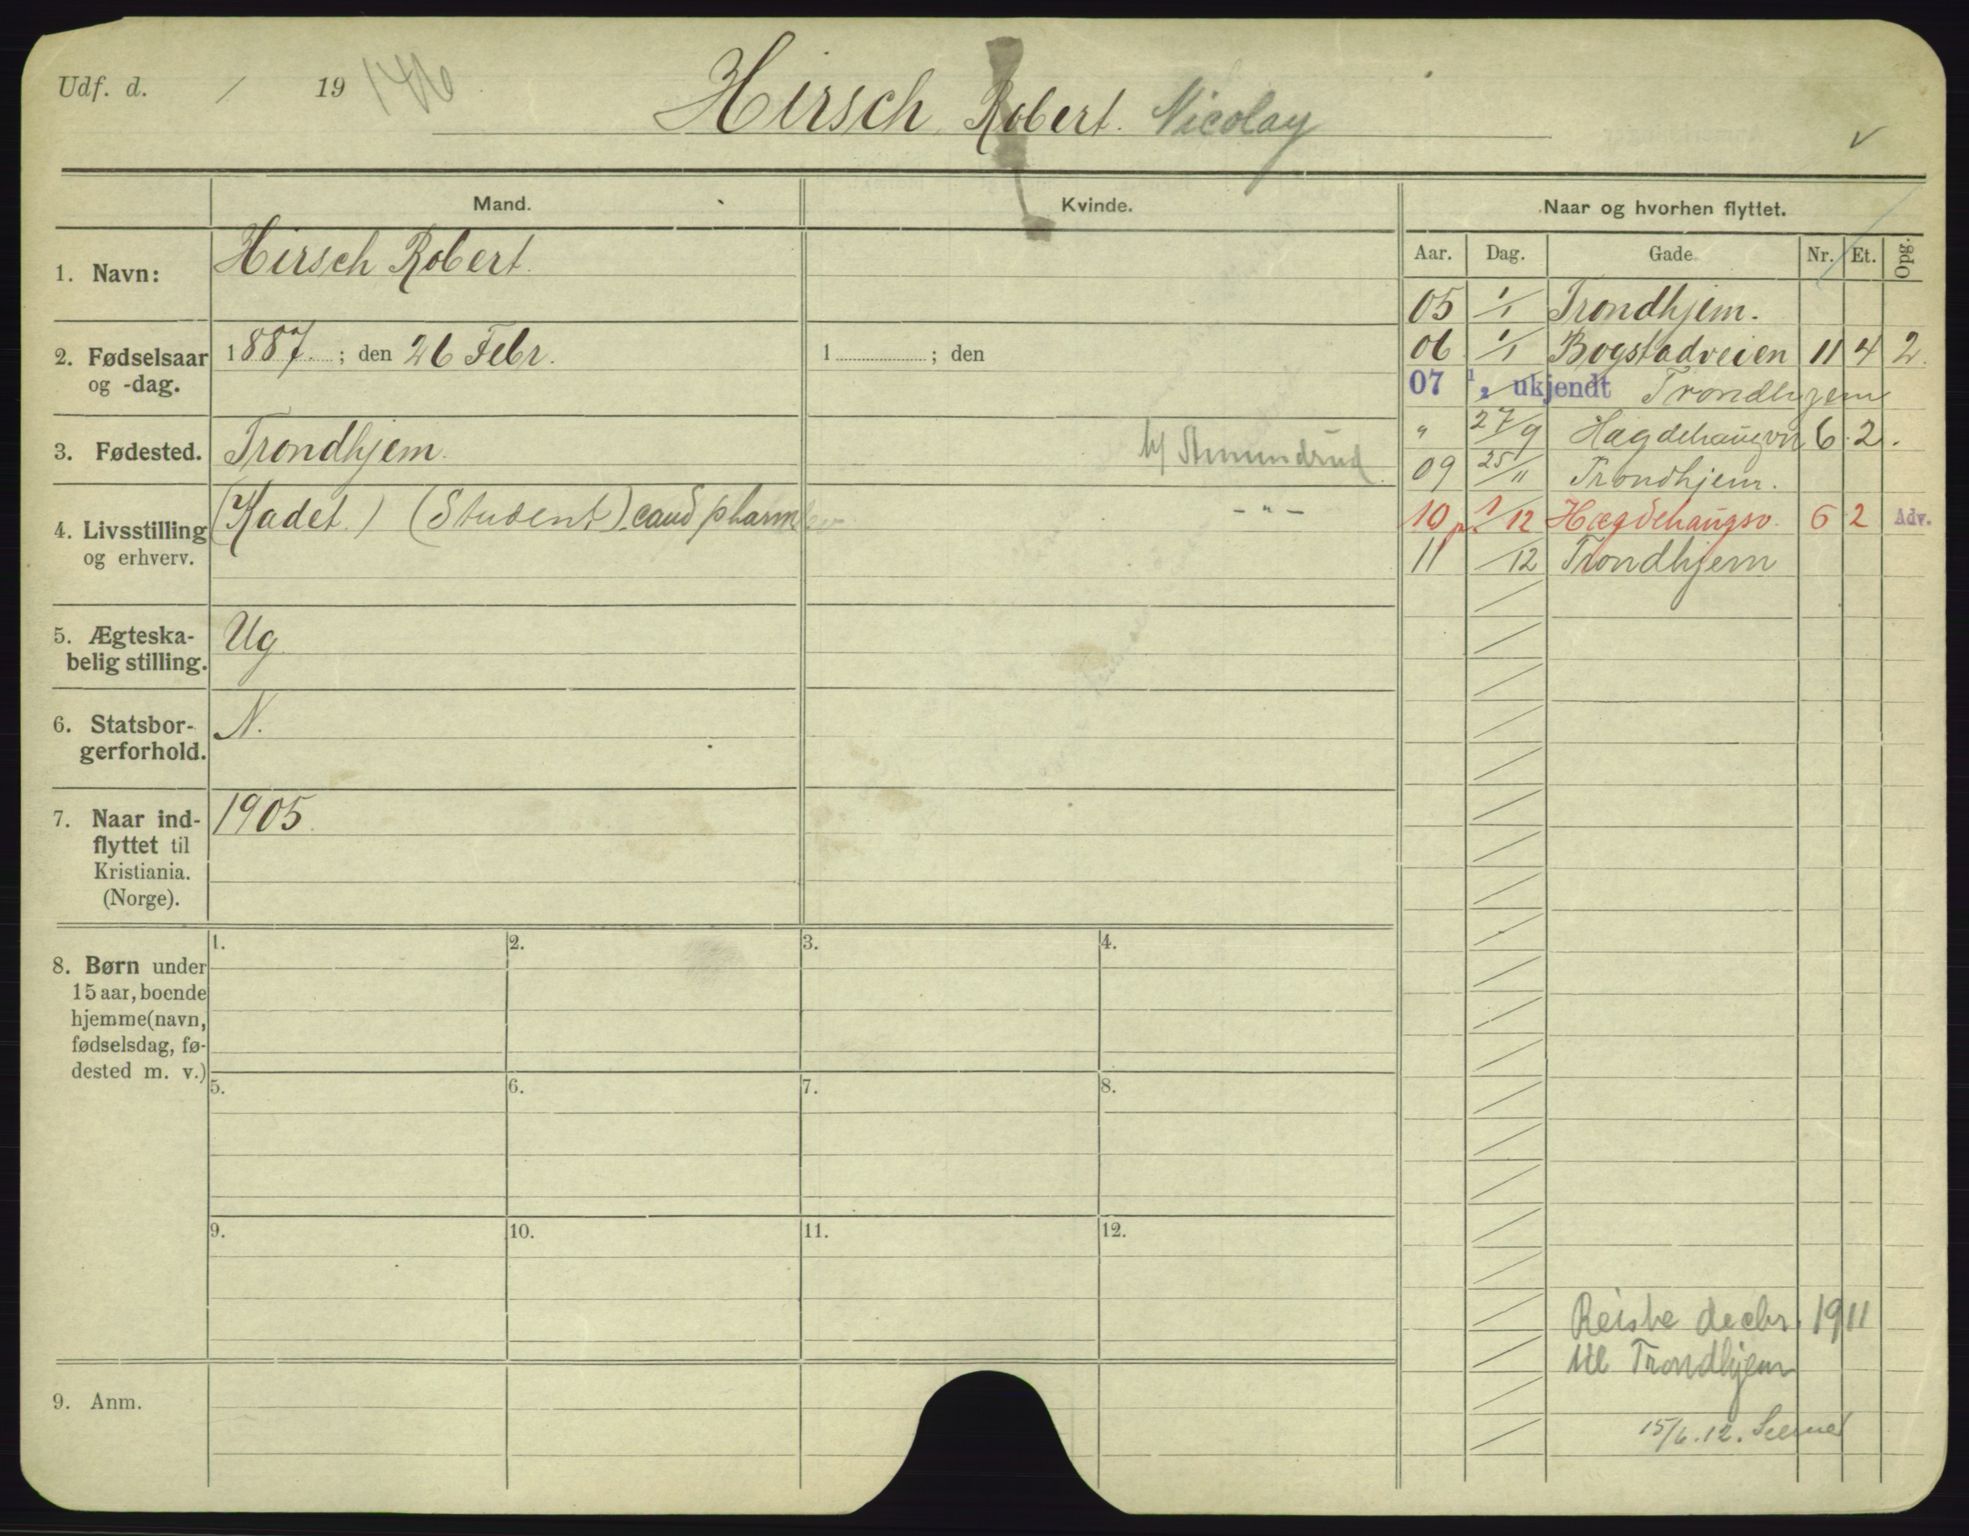 Udf. d. / 19 146
Hirsch, Robert. Nicolay
v
Mand.
Kvinde.
Naar og hvorhen flyttet.
Aar. Dag. Gade Nr. Et. Opg.
1. Navn:
Hirsch, Robert.
2. Fødselsaar
og -dag.
1887 ; den 26 Febr.
1 ; den
3. Fødested.
Trondhjem.
h/ Amundrud
4. Livsstilling
og erhverv.
(Kadet.) (Student) cand pharm
- " -
5. Ægteska-
belig stilling.
Ug
6. Statsbor-
gerforhold.
N.
7. Naar ind-
flyttet til
Kristiania.
(Norge).
1905.
05 1/1 Trondhjem.
06 1/1 Bogstadveien 11 4 2.
07 1/2 ukjendt Trondhjem
" 27/9 Hægdehaugvn 6. 2.
09 25/11 Trondhjem.
10 1/12 Hægdehaugsv. 6 2 Adv.
11 /12 Trondhjem
8. Børn under
15 aar, boende
hjemme (navn,
fødselsdag, fø-
dested m. v.)
1. 2. 3. 4.
5. 6. 7. 8.
9. 10. 11. 12.
Reiste decbr. 1911
til Trondhjem
15/6.12.
9. Anm.